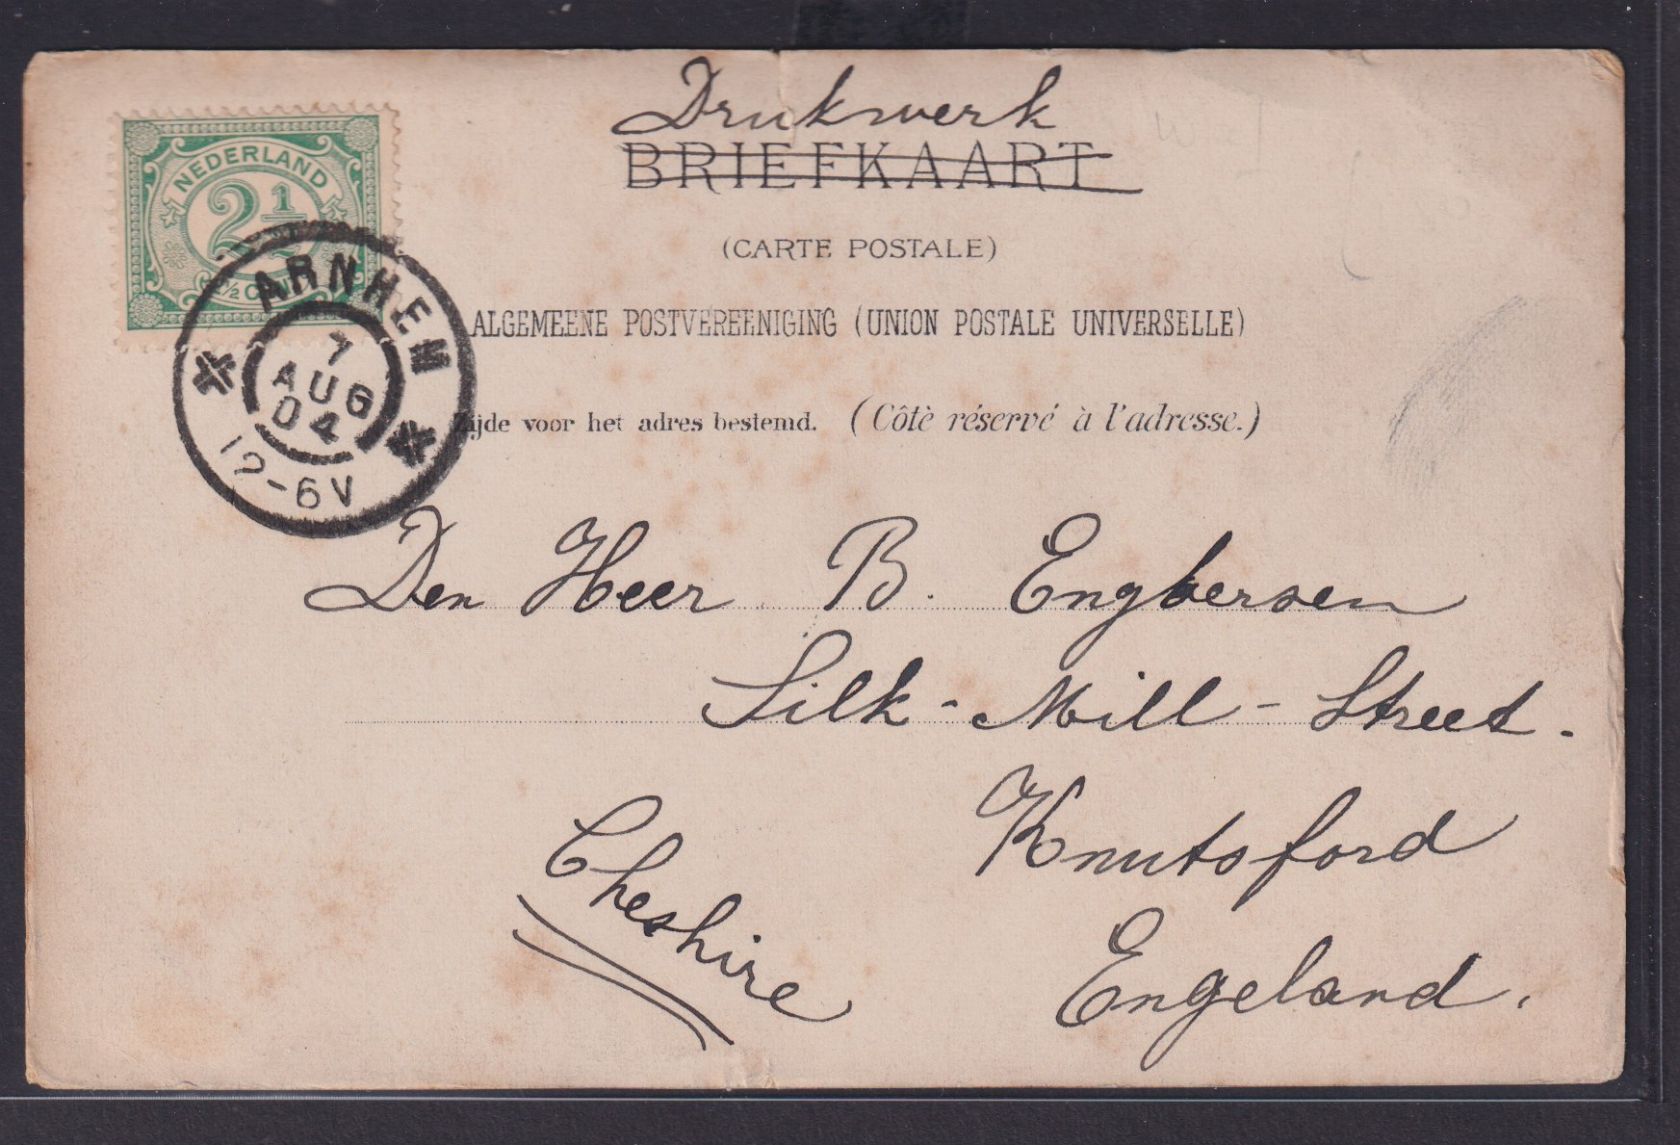 Drukwerk
BRIEFKAART
(CARTE POSTALE)
ALGEMEENE POSTVEREENIGING (UNION POSTALE UNIVERSELLE)
Zijde voor het adres bestemd. (Côtè réservé à l'adresse.)
NEDERLAND
2 1/2
2½ CENT
ARNHEM
7
AUG
04
12-6V
Den Heer B. Engbersen
Silk-Mill-Street.
Knutsford
Cheshire
Engeland.